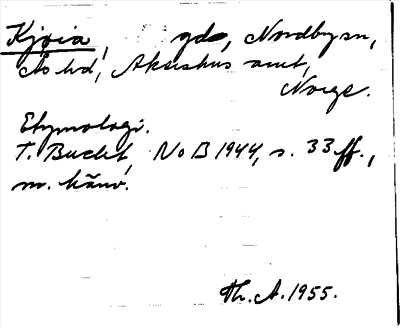 Kjøia, gdo, Nordbysn,
Ås hd, Akershus amt,
Norge.
Etymologi.
T. Bucht, NoB 1944, s. 33 ff.,
m. hänv.
Th. A. 1955.